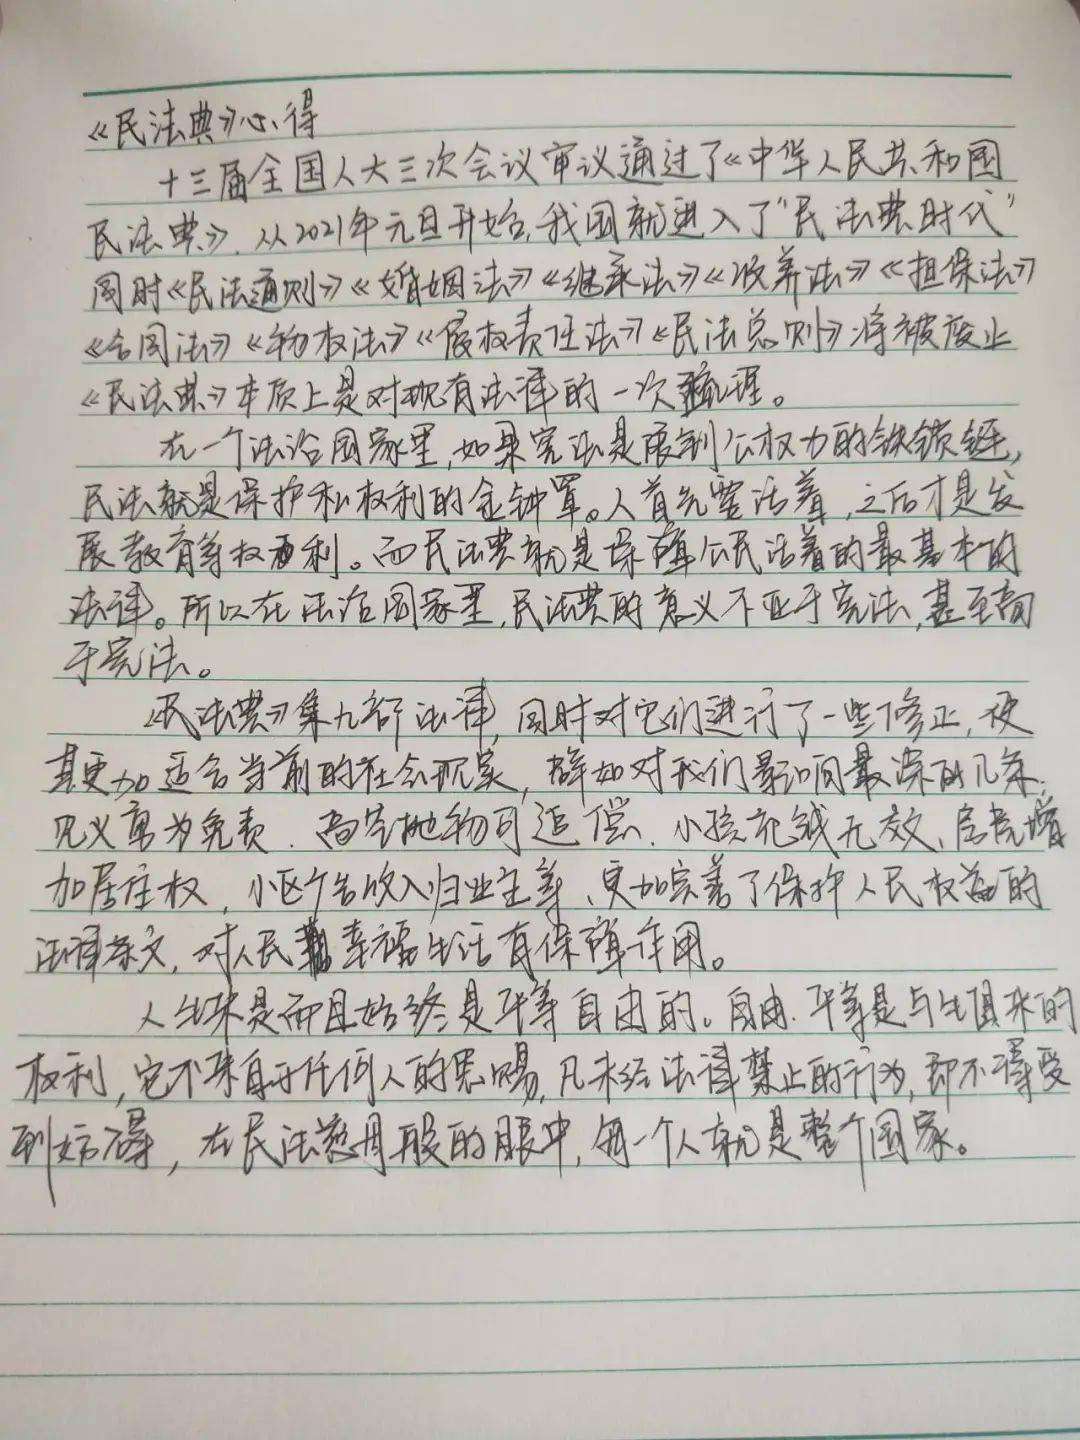 《民法典》心得
十三届全国人大三次会议审议通过了《中华人民共和国
民法典》,从2021年元旦开始,我国就进入了"民法典时代"
同时《民法通则》《婚姻法》《继承法》《收养法》《担保法》
《合同法》《物权法》《侵权责任法》《民法总则》将被废止
《民法典》本质上是对现有法律的一次整理。
在一个法治国家里,如果宪法是限制公权力的铁锁链,
民法就是保护私权利的金钟罩。人首先要活着,之后才是发
展教育等权利。而民法典就是保障公民活着的最基本的
法律。所以在法治国家里,民法典的意义不亚于宪法,甚至高
于宪法。
《民法典》集九部法律,同时对它们进行了一些修正,使
其更加适合当前的社会现实,譬如对我们影响最深的几条:
见义勇为免责、高空抛物可追偿、小孩花钱无效、居民增
加居住权,小区广告收入归业主等、更加完善了保护人民权益的
法律条文,对人民幸福生活有保障作用。
人生来是而且始终是平等自由的。自由、平等是与生俱来的
权利,它不来自于任何人的恩赐,凡未经法律禁止的行为,即不得受
到妨碍,在民法慈母般的眼中,每一个人就是整个国家。